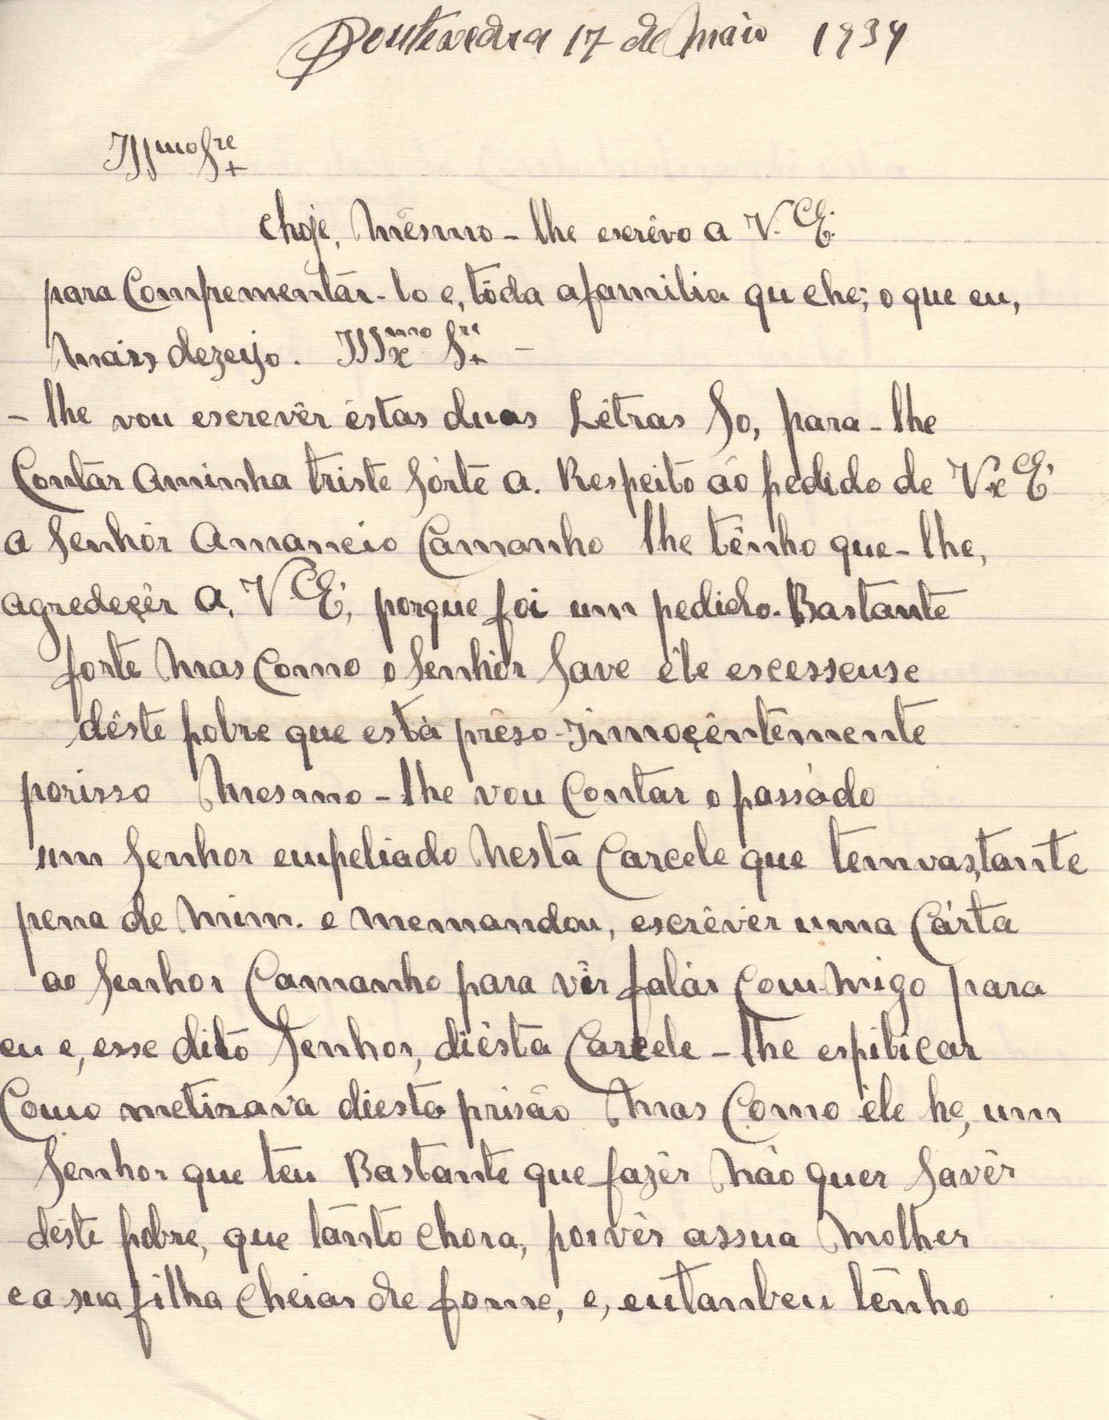 Pontevedra 17 de Maio 1939
Illmo Sre
choje, Mêsmo - lhe escrêvo a V. CE.
para Comprementár-lo e, tôda afamilia qu ehe; o que eu,
Mais dezeijo. Illmo Sre -
- lhe vou escrevêr éstas duas Lêtras So, para-lhe
Contár aminha triste sórte a. Respeito áo pedido de V. CE,
a Senhór Amancio Camanho lhe tênho que-lhe,
agredeçêr a, V. CE, porque foi um pedido. Bastante
forte Mas Como o Senhór Save êle escesseuse
dêste pobre que está prêso Innoçêntêmente
porisso Mesmo - lhe vou Contar o passádo
um Senhor empeliado Nesta Carcele que temvastante
pena de Mim. e memandou, escrêvêr uma Cárta
ao Senhor Camanho para vir falár Com Migo para
eu e, esse dito Senhor, diésta Carcele - lhe espilicar
Como metirava diesta prisão Mas Como éle he, um
Senhor que teu Bastante que fazêr Não quer Savêr
dêste pobre, que tánto chora, por vêr assua Molher
e a sua filha cheias de fome, e, eutanbeu tênho